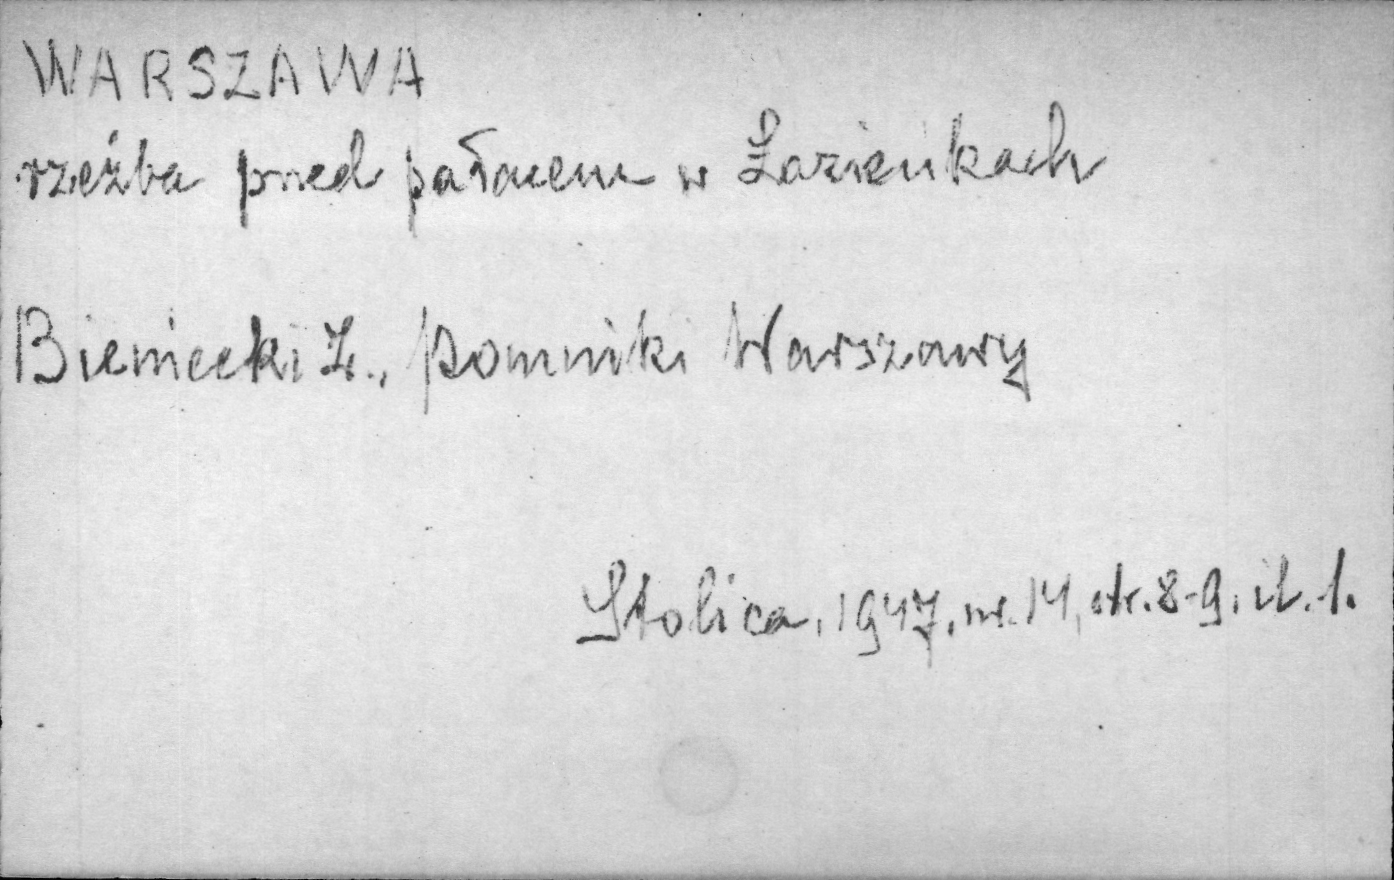 WARSZAWA
rzeźba przed pałacem w Łazienkach
Bieniecki Z., Pomniki Warszawy
Stolica, 1947, nr. 14, str. 8-9, il. 1.